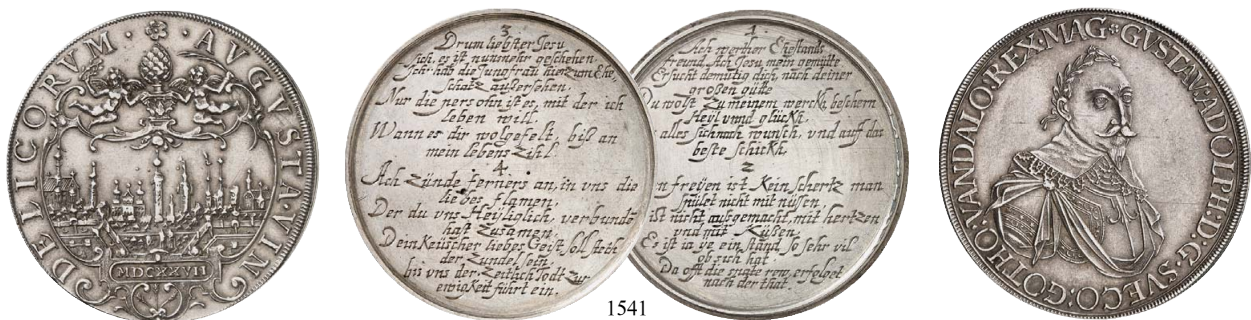 AVGVSTA·VIN
DELICORVM·
MDCXXVII
3
Drum liebster Jesu
sich, es ist nunmehr geschehen
Ich hab die Jungfrau hier zum Ehe,
schatz ausersehen.
Nur die persohn ist es, mit der ich
leben will.
Wann es dir wolgefelt, biß an
mein lebens Zihl.
4
Ach Zünde ferners an, in vns die
liebes flamen,
Der du vns Heyliglich, verbundt
hast Zusamen,
Dein Keüscher liebes Geist soll stets
der Zundel sein,
biß vns der Zeitlich Todt, zur
ewigkeit führt ein.
1
Ach werther Ehestands
freund, Ach Jesu mein gemüte
Ersucht demütig dich nach deiner
großen güte
Du wolst Zu meinem werckh beschern
Heyl vnnd glückh.
alles sich nach wunsch, vnd auf das
beste schickh.
2
n freÿen ist Kein schertz man
spület nicht mit nüßen,
ist nicht ausgemacht, mit hertzen
vnd mit Küßen,
Es ist ia ye ein stand so sehr vil
ob sich hat
Da offt die späte rew, erfolget
nach der that.
GVSTAV:ADOLPH:D:G·SVECO:GOTHO:VANDALO:REX·MAG
1541